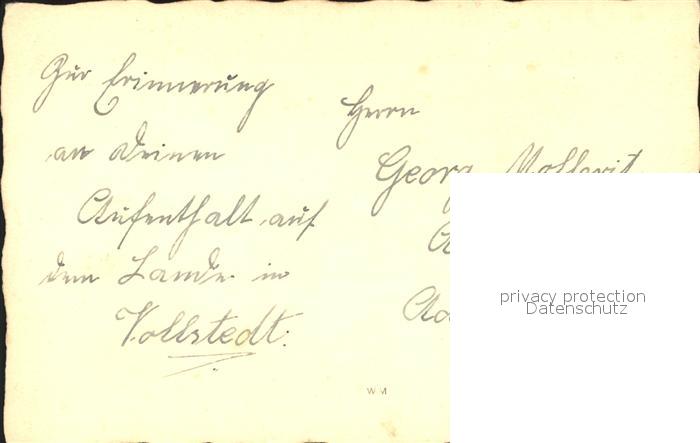 Zur Erinnerung
an Deinen
Aufenthalt auf
dem Lande in
Vollstedt.
Herrn
Georg
privacy protection
Datenschutz
WM